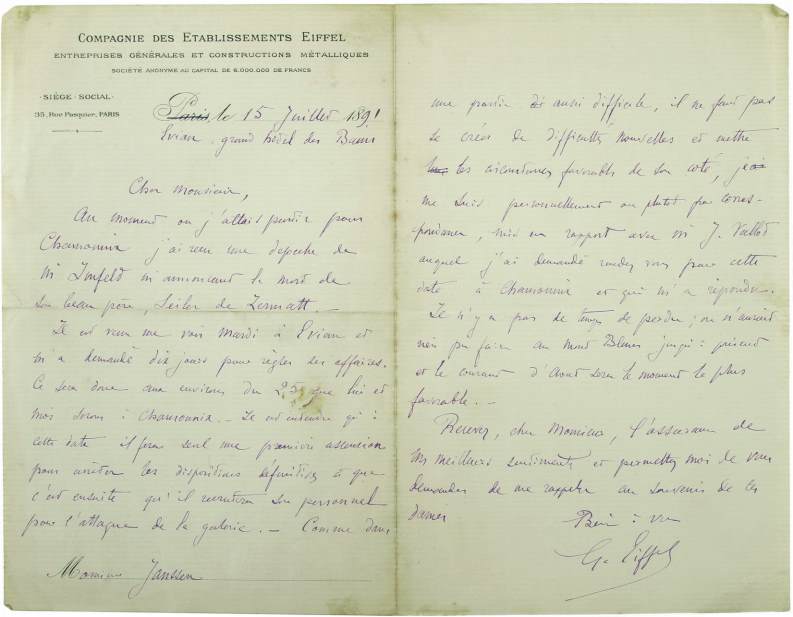 COMPAGNIE DES ETABLISSEMENTS EIFFEL
ENTREPRISES GÉNÉRALES ET CONSTRUCTIONS MÉTALLIQUES
SOCIÉTÉ ANONYME AU CAPITAL DE 6.000.000 DE FRANCS
SIÈGE SOCIAL
35, Rue Pasquier, PARIS
Paris, le 15 Juillet 1891
Evian, grand hôtel des Bains
Cher Monsieur,
Au moment ou j'allais partir pour
Chamounix j'ai reçu une depeche de
M Imfeld m'annoncant la mort de
son beau père, Seiler de Zermatt. —
Il est venu me voir Mardi à Evian et
m'a demandé dix jours pour régler ses affaires.
Ce sera donc aux environs du 25 que lui et
moi serons à Chamounix. — Il est entendu qu'à
cette date il fera seul une première ascension
pour arrêter les dispositions définitives & que
c'est ensuite qu'il recrutera son personnel
pour l'attaque de la galerie. — Comme dans
Monsieur Janssen
une partie aussi difficile, il ne faut pas
se créer de difficultés nouvelles et mettre
les circonstances favorables de son coté, je
me suis personnellement ou plutot par corres-
pondance, mis en rapport avec M J. Vallot
auquel j'ai demandé rendez vous pour cette
date à Chamounix et qui m'a répondu.
Il n'y a pas de temps de perdu; on n'aurait
rien pu faire au Mont Blanc jusqu'à présent
et le courant d'Aout sera le moment le plus
favorable. —
Recevez, cher Monsieur, l'assurance de
mes meilleurs sentiments et permettez moi de vous
demander de me rappeler au souvenir de ces
dames
Bien à vous
G. Eiffel